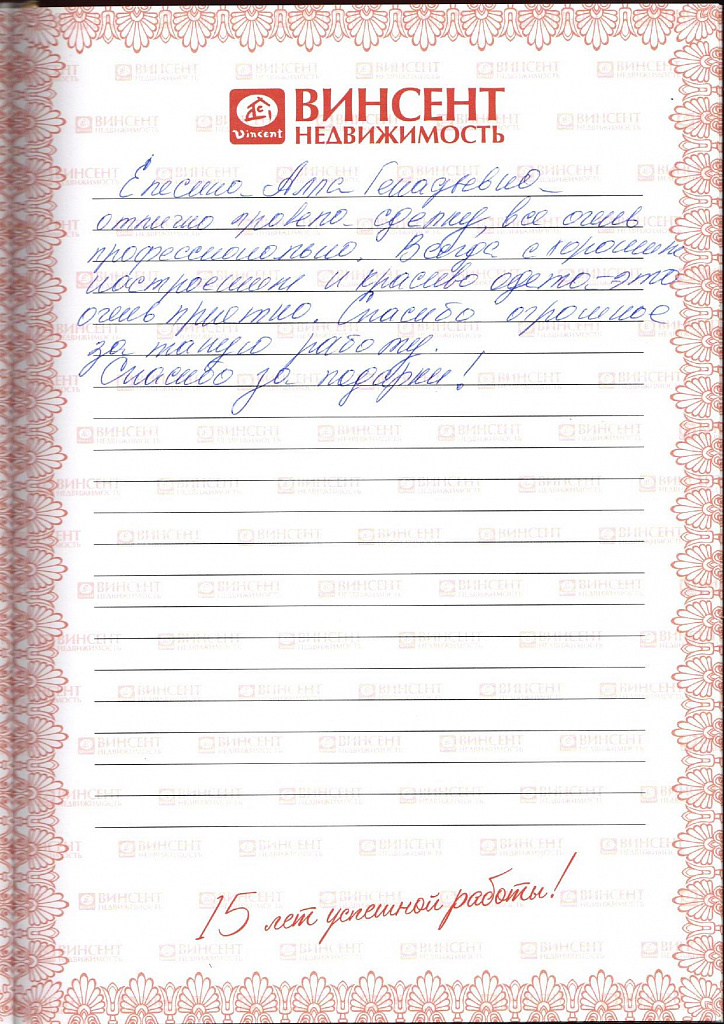 ВИНСЕНТ
НЕДВИЖИМОСТЬ
Vincent
Елесина Алла Генадьевна
отлично провела сделку, все очень
профессионально. Всегда с хорошим
настроением и красиво одета это
очень приятно. Спасибо огромное
за такую работу.
Спасибо за подарки!
15 лет успешной работы!